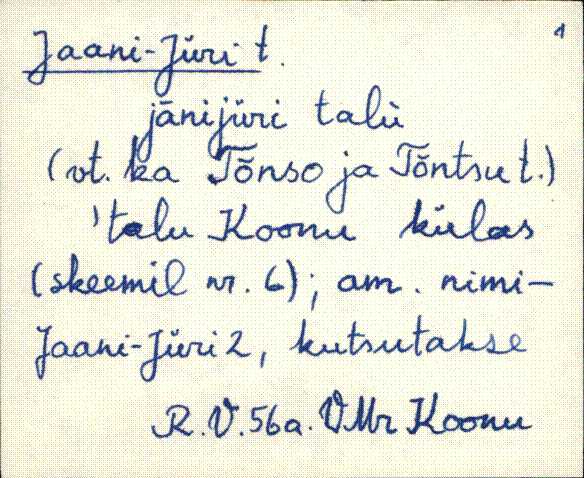 1
Jaani-Jüri t.
jānijüri talu
(vt. ka Tõnso ja Tõntsu t.)
'talu Koonu külas
(skeemil nr. 6); am. nimi-
Jaani-Jüri 2, kutsutakse
R.V. 56a. VMr Koonu